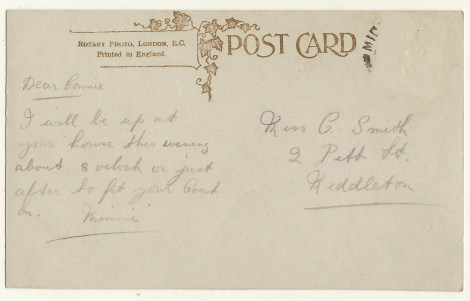 ROTARY PHOTO, LONDON, E.C.
Printed in England.
POST CARD
Dear Connie
I will be up at
your house this evening
about 8 oclock or just
after to fit your Coat
on. Minnie
Miss C. Smith
2 Pitt St.
Middleton